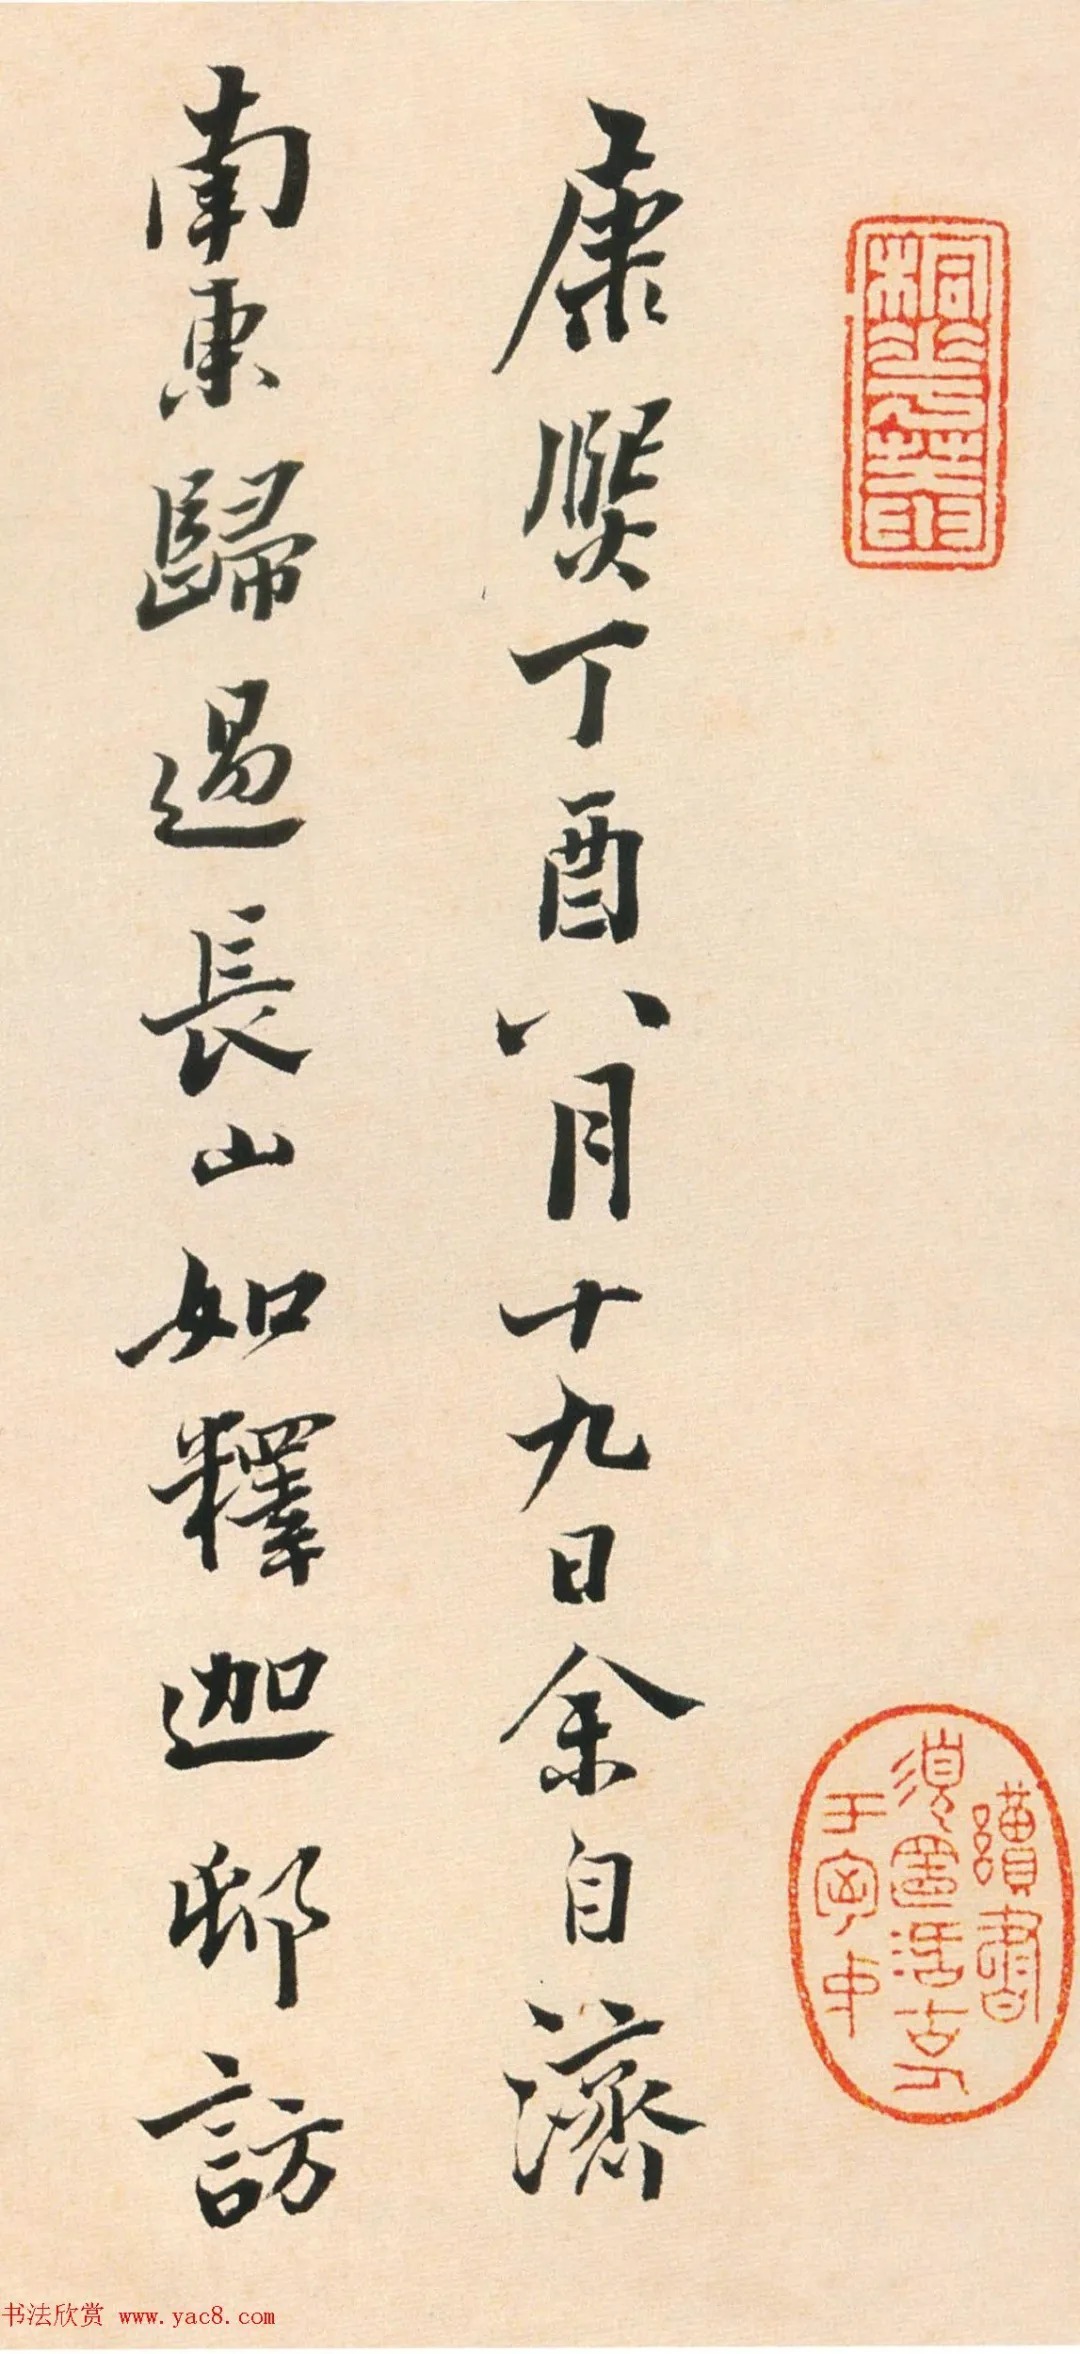 康熙丁酉八月十九日余自濟
南東歸過長山如釋迦邨訪
讀書
須盡活
于守中
书法欣赏 www.yac8.com